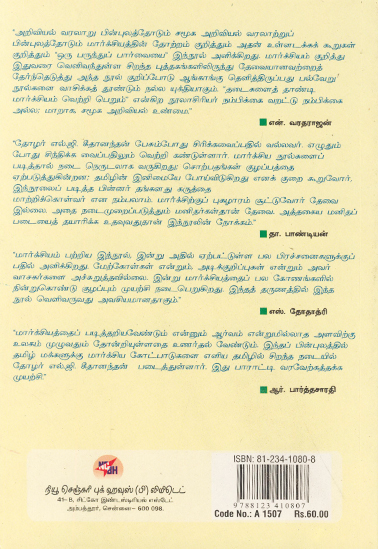 "அறிவியல் வரலாறு பின்புலத்தோடும் சமூக அறிவியல் வரலாற்றுப்
பின்புலத்தோடும் மார்க்சியத்தின் தோற்றம் குறித்தும் அதன் உள்ளடக்கக் கூறுகள்
குறித்தும் "ஒரு பருந்துப் பார்வையை" இந்நூல் அளிக்கிறது. மார்க்சியம் குறித்து
இதுவரை வெளிவந்துள்ள சிறந்த புத்தகங்களிலிருந்து தேவையானவற்றைத்
தேர்ந்தெடுத்து அந்த நூல் குறிப்போடு ஆங்காங்கு தெளித்திருப்பது பல்வேறு
நூல்களை வாசிக்கத் தூண்டும் நல்ல யுக்தியாகும். "தடைகளைத் தாண்டி
மார்க்சியம் வெற்றி பெறும்" என்கிற நூலாசிரியர் நம்பிக்கை வறட்டு நம்பிக்கை
அல்ல; மாறாக, சமூக அறிவியல் உண்மை."
என். வரதராஜன்
"தோழர் எல்.ஜி. கீதானந்தன் பேசும்போது சிரிக்கவைப்பதில் வல்லவர். எழுதும்
போது சிந்திக்க வைப்பதிலும் வெற்றி கண்டுள்ளார். மார்க்சிய நூல்களைப்
படித்தால் நடை நெருடலாக வருகிறது; சொற்பதங்கள் குழப்பத்தை
ஏற்படுத்துகின்றன; தமிழின் இனிமையே போய்விடுகிறது எனக் குறை கூறுவோர்,
இந்நூலைப் படித்த பின்னர் தங்களது கருத்தை
மாற்றிக்கொள்வர் என நம்பலாம். மார்க்சிற்குப் புகழாரம் சூட்டுவோர் தேவை
இல்லை. அதை நடைமுறைப்படுத்தும் மனிதர்கள்தான் தேவை. அத்தகைய மனிதப்
படையைத் தயாரிக்க உதவுவதுதான் இந்நூலின் நோக்கம்."
தா. பாண்டியன்
"மார்க்சியம் பற்றிய இந்நூல், இன்று அதில் ஏற்பட்டுள்ள பல பிரச்சனைகளுக்குப்
பதில் அளிக்கிறது. மேற்கோள்கள் என்றும், அடிக்குறிப்புகள் என்றும் அவர்
வாசகர்களை அச்சுறுத்தவில்லை. இன்று மார்க்சியத்தைப் பல கோணங்களில்
நின்றுகொண்டு குழப்பும் முயற்சி நடைபெறுகிறது. இந்தத் தருணத்தில் இந்த
நூல் வெளிவருவது அவசியமானதாகும்."
எஸ். தோதாத்ரி
"மார்க்சியத்தைப் படித்தறியவேண்டும் என்னும் ஆர்வம் என்றுமில்லாத அளவிற்கு
உலகம் முழுவதும் தோன்றியுள்ளதை உணர்தல் வேண்டும். இந்தப் பின்புலத்தில்
தமிழ் மக்களுக்கு மார்க்சிய கோட்பாடுகளை எளிய தமிழில் சிறந்த நடையில்
தோழர் எல்.ஜி. கீதானந்தன் படைத்துள்ளார். இது பாராட்டி வரவேற்கத்தக்க
முயற்சி."
ஆர். பார்த்தசாரதி
நியூ செஞ்சுரி புக் ஹவுஸ் (பி) லிமிடெட்
41- B, சிட்கோ இண்டஸ்டிரியல் எஸ்டேட்
அம்பத்தூர், சென்னை– 600 098.
ISBN: 81-234-1080-8
9788123410807
Code No.: A 1507 Rs.60.00